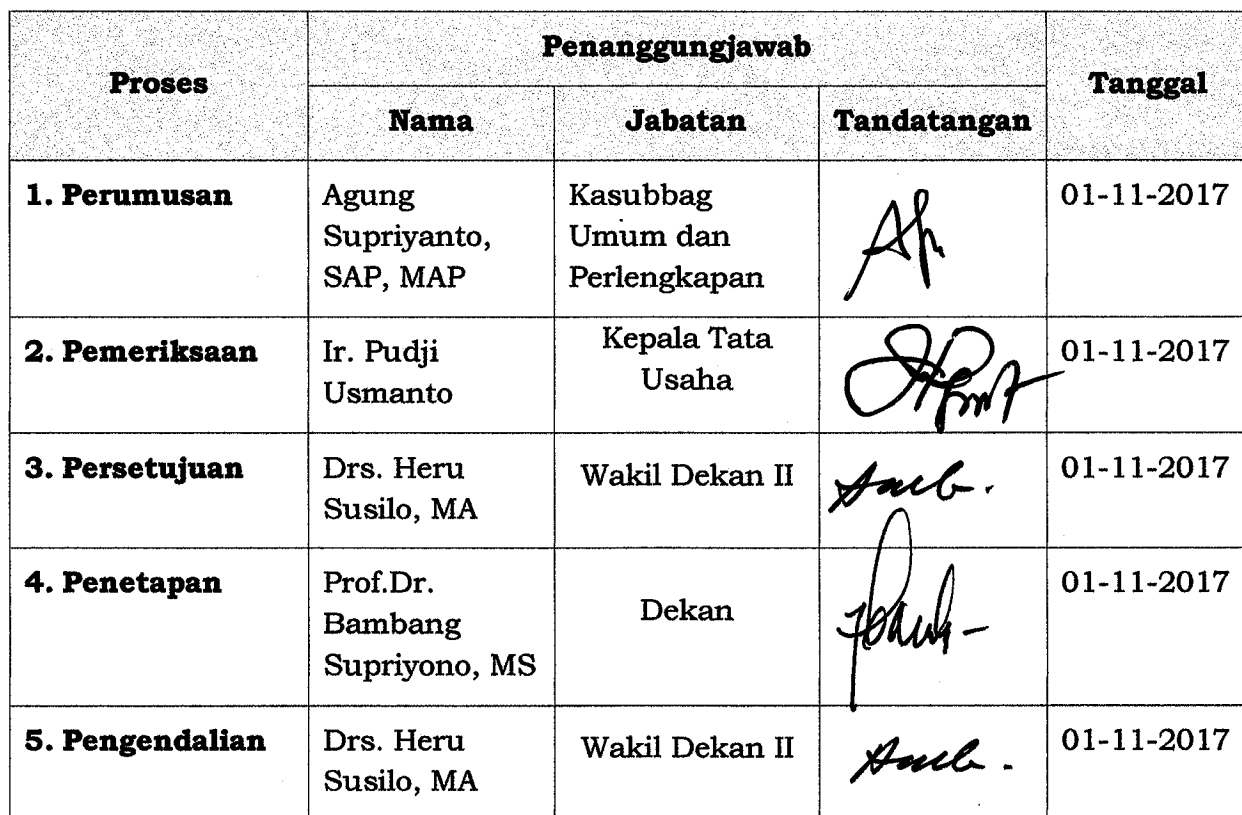 Proses
Penanggungjawab
Tanggal
Nama
Jabatan
Tandatangan
1. Perumusan
Agung
Supriyanto,
SAP, MAP
Kasubbag
Umum dan
Perlengkapan
01-11-2017
2. Pemeriksaan
Ir. Pudji
Usmanto
Kepala Tata
Usaha
01-11-2017
3. Persetujuan
Drs. Heru
Susilo, MA
Wakil Dekan II
01-11-2017
4. Penetapan
Prof.Dr.
Bambang
Supriyono, MS
Dekan
01-11-2017
5. Pengendalian
Drs. Heru
Susilo, MA
Wakil Dekan II
01-11-2017